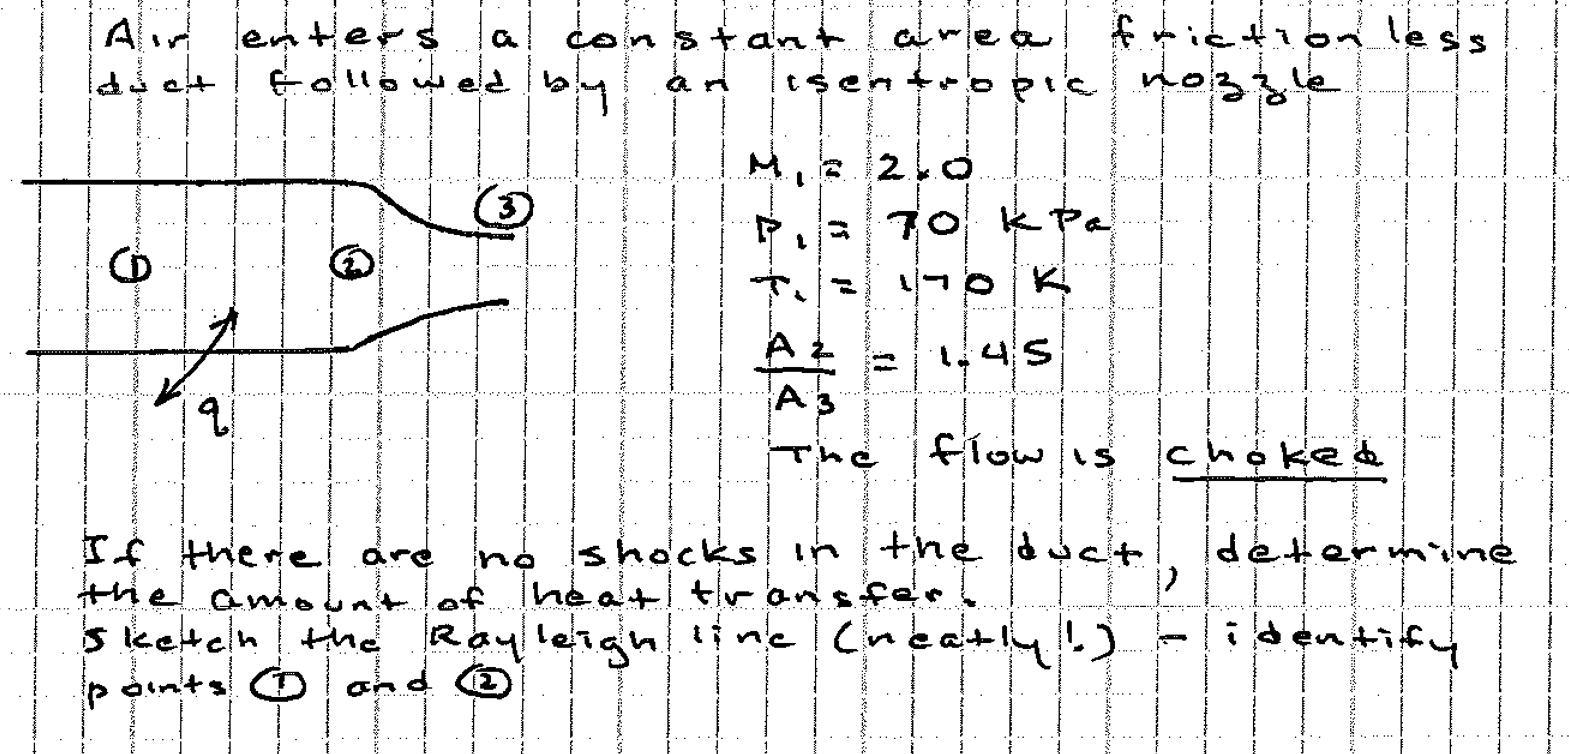 Air enters a constant area frictionless
duct followed by an isentropic nozzle
M₁ = 2.0
③
P₁ = 70 kPa
① ②
T₁ = 170 K
A₂/A₃ = 1.45
q
The flow is choked
If there are no shocks in the duct, determine
the amount of heat transfer.
Sketch the Rayleigh line (neatly!) – identify
points ① and ②